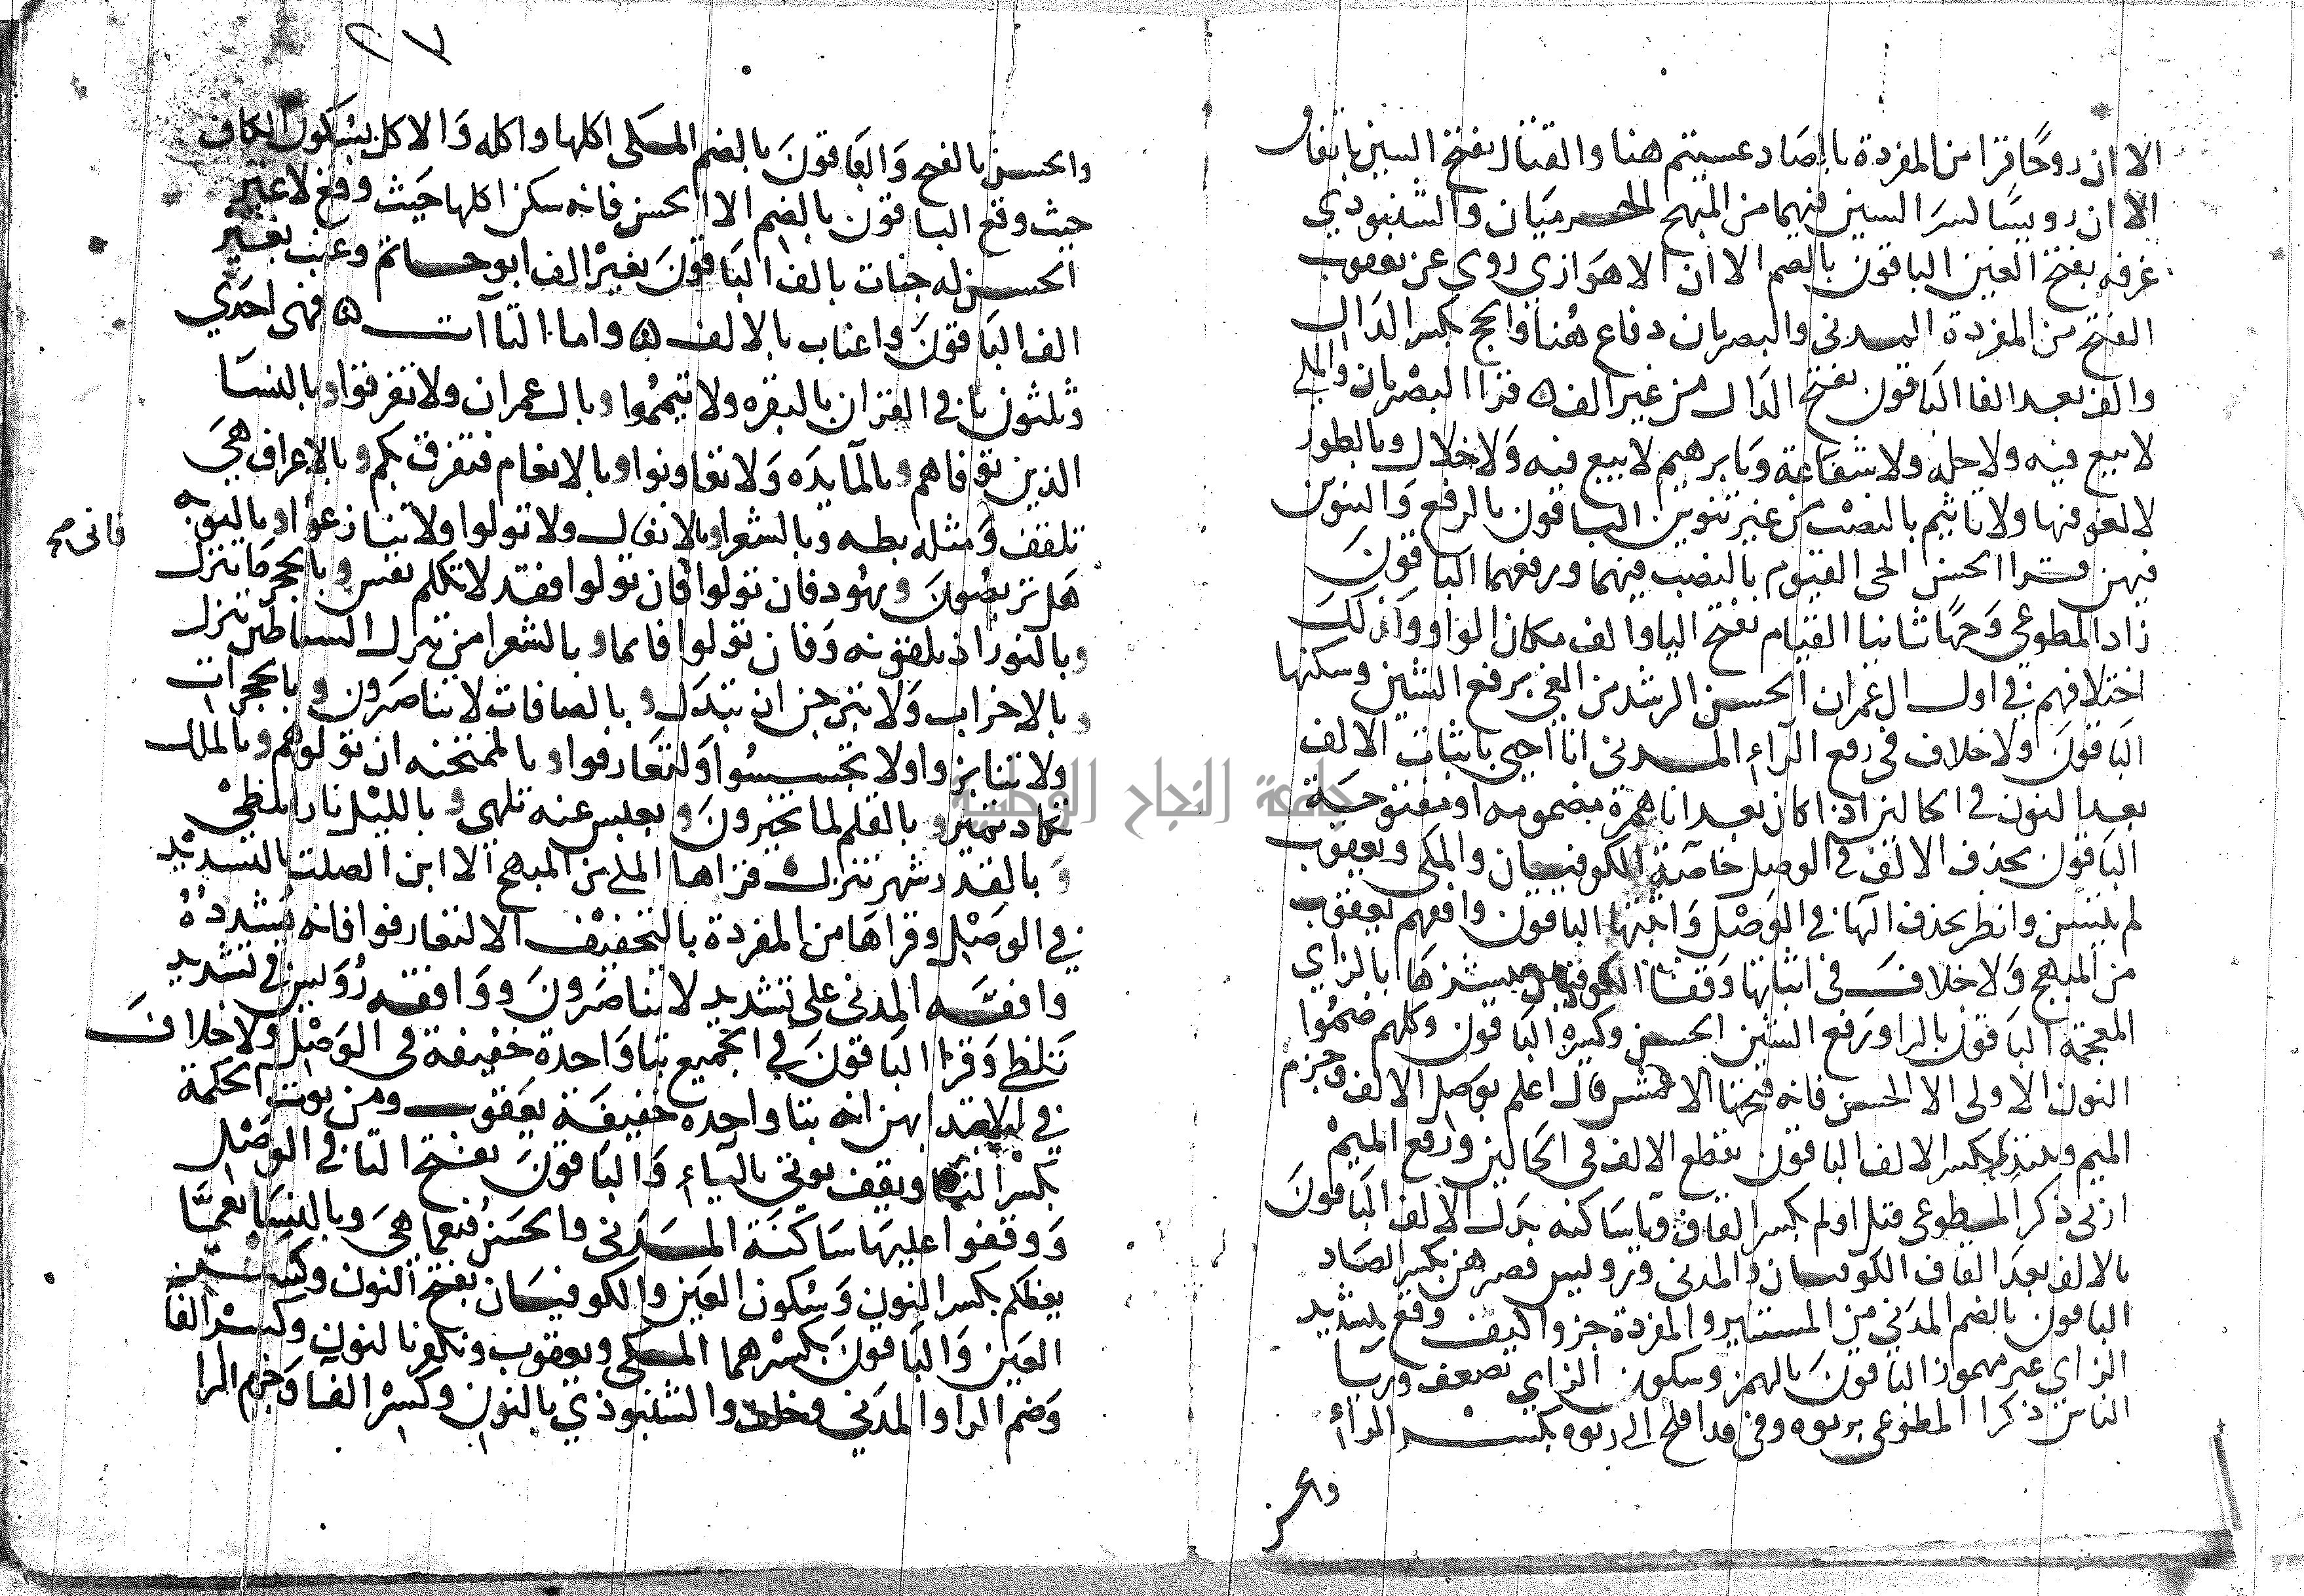 الا ان روحًا قرا من المفردة بالصاد عسيتم هنا والقتال بفتح السين باتفاق
الا ان رويسًا كسر السين فيهما من المبهج الحرميان والشنبوذي
غرفه بفتح الغين الباقون بالضم الا ان الاهوازي روى عن يعقوب
الفتح من المفردة المدنى والبصريان دفاع هنا وبالحج بكسر الدال
والف بعد الفا الباقون بفتح الدال من غير الف ۞ قرا البصريان والمكي
لا بيع فيه ولا خله ولا شفاعة وبابرهيم لا بيع فيه ولا خلال وبالطور
لا لغو فيها ولا تاثيم بالنصب من غير تنوين الباقون بالرفع والتنوين
فيهن قرا الحسن الحى القيوم بالنصب فيهما ورفعهما الباقون
زاد المطوعى وجهًا ثانيا القيام بفتح اليا والف مكان الواو وكذلك
اختلافهم في اول ال عمران الحسن الرشد من الغى برفع الشين وسكنها
الباقون ولا خلاف فى رفع الرآء المدنى انا احيى باثبات الالف
بعد النون في الحالين اذا كان بعد انا همزة مضمومه او مفتوحة
الباقون بحذف الالف في الوصل خاصة الكوفييان والمكى ويعقوب
لم يتسن وانظر بحذف الها في الوصل واثبتها الباقون وافقهم يعقوب
من المبهج ولا خلاف فى اثباتها وقفا الكوفيان ننشزها بالزاي
المعجمة الباقون بالرا ورفع الشين الحسن وكسره الباقون وكلهم ضموا
النون الاولى الا الحسن فانه فتحها الاعمش قال اعلم بوصل الالف وجزم
الميم ويبتدي بكسر الالف الباقون بقطع الالف فى الحالين ورفع الميم
ارنى ذكر المطوعى قبل اولم بكسر القاف ويا ساكنه بدل الالف الباقون
بالالف بعد القاف الكوفيان والمدنى ورويس فصرهن بكسر الصاد
الباقون بالضم المدني من المستنير والمفردة جزوا كيف وقع بتشديد
الزاي غير مهموز الباقون بالهمز وسكون الزاي تضعف ورئا
الناس ذكرا المطوعى بربوه وفى قد افلح الى ربوه بكسر الرآء
والحسن بالفتح والباقون بالضم المكى اكلها واكله والاكل بسكون الكاف
حيث وقع الباقون بالضم الا الحسن فانه سكن اكلها حيث وقع لا غير
الحسن له جنات بالف الباقون بغير الف ابو حاتم وعنب بغير
الف الباقون واعناب بالالف ۞ واما التاآت ۞ فهى احدي
وثلثون تا في القران بالبقره ولا تيمموا وبال عمران ولا تفرقوا وبالنسا
الذين توفاهم وبالمآيده ولا تعاونوا وبالانعام فتفرق بكم وبالاعراف هي
تلقف ومثله بطه وبالشعرا وبالانفال ولا تولوا ولا تنازعوا وبالتوبه
هل تربصون وبهود فان تولوا فان تولوا فقد لا تكلم نفس وبالحجر ما تنزل
وبالنور اذ تلقونه وفان تولوا فانما وبالشعرا من تنزل الشياطين تنزل
وبالاحزاب ولا تبرجن ان تبدل وبالصافات لا تناصرون وبالحجرات
ولا تنابزوا ولا تجسسوا ولتعارفوا وبالممتحنه ان تولوهم وبالملك
تكاد تميز وبالقلم لما تخيرون وبعبس عنه تلهى وبالليل نارا تلظى
وبالقدر شهر تنزل قراها المكى من المبهج الا ابن الصلت بالتشديد
في الوصل وقراها من المفردة بالتخفيف الا لتعارفوا فانه شدده
وافقه المدنى على تشديد لا تناصرون ووافقه رويس في تشديد
تلظى وقرا الباقون في الجميع بتا واحدة خفيفة فى الوصل ولا خلاف
في الابتدا بهن انه بتا واحده خفيفة يعقوب ومن يوت الحكمة
بكسر التا ويقف يوتى باليآء والباقون بفتح التا في الوصل
ووقفوا عليها ساكنة المدنى والحسن فنعما هي وبالنسا نعمّا
يعظكم بكسر النون وسكون العين والكوفيان بفتح النون وكسر
العين والباقون بكسرهما المكى ويعقوب ونكفر بالنون وكسر الفا
وضم الرا والمدني وخلف والشنبوذي بالنون وكسر الفا وجزم الرا
جامعة النجاح الوطنية